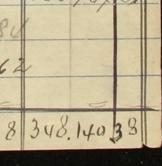 84
62
8 348.140 38